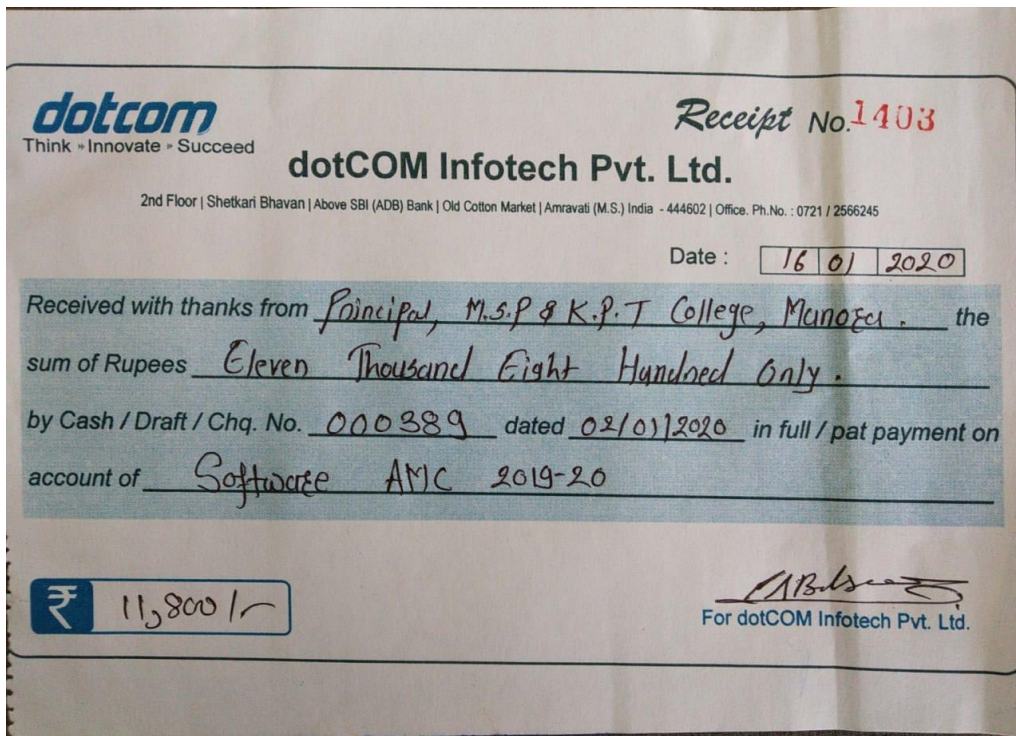 dotcom
Think » Innovate » Succeed
Receipt No. 1403
dotCOM Infotech Pvt. Ltd.
2nd Floor | Shetkari Bhavan | Above SBI (ADB) Bank | Old Cotton Market | Amravati (M.S.) India - 444602 | Office. Ph.No. : 0721 / 2566245
Date : 16 01 2020
Received with thanks from Principal, M.S.P & K.P.T College, Manora. the
sum of Rupees Eleven Thousand Eight Hundred Only.
by Cash / Draft / Chq. No. 000389 dated 02/01/2020 in full / pat payment on
account of Software AMC 2019-20
₹ 11,800/-
For dotCOM Infotech Pvt. Ltd.